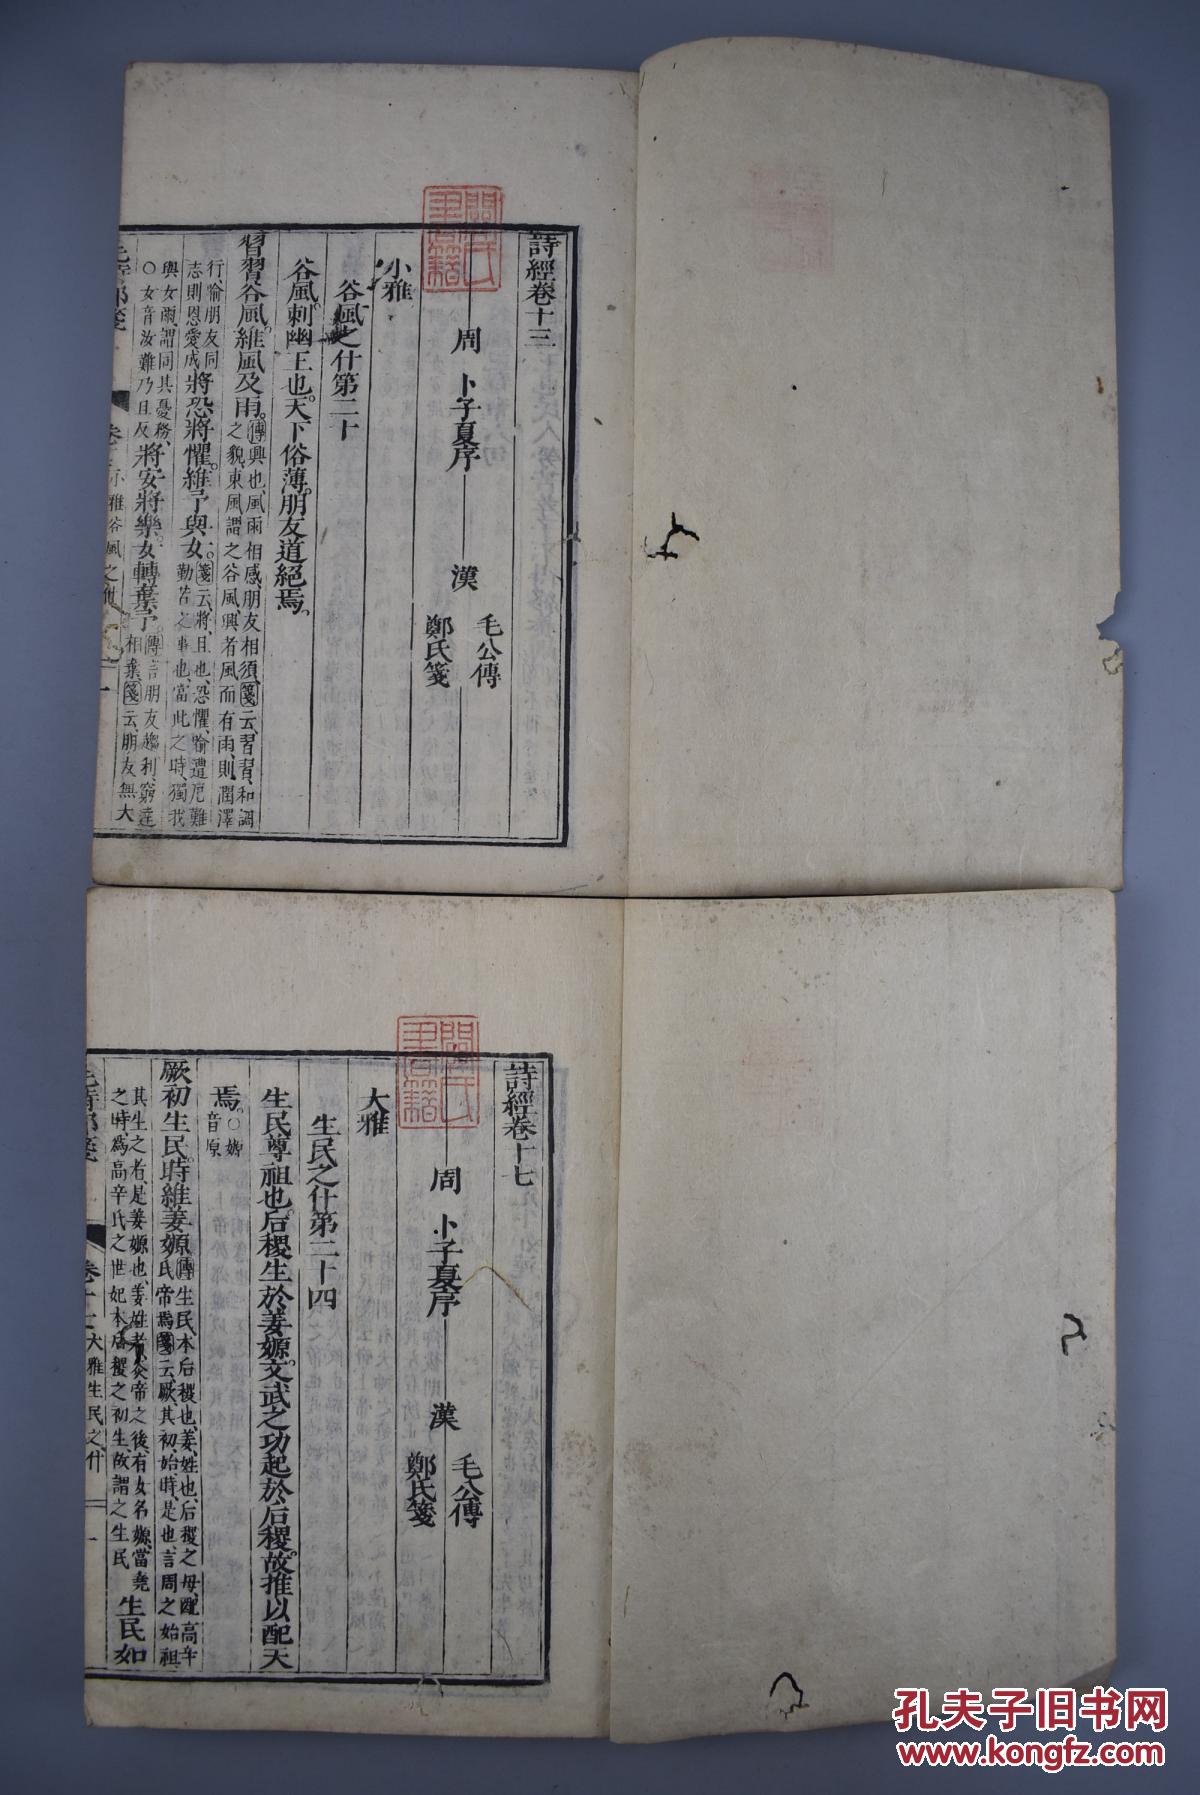 詩經卷十三
周 卜子夏序 漢 毛公傳 鄭氏箋
小雅
谷風之什第二十
谷風。刺幽王也。天下俗薄。朋友道絕焉。
習習谷風。維風及雨。傳興也、風雨相感、朋友相須、箋云、習習、和調之貌、東風謂之谷風、興者風而有雨、則潤澤
行、喻朋友同志則恩愛成、將恐將懼。維予與女。箋云、將、且也、恐懼、喻遭厄難勤苦之事也、當此之時、獨我
與女爾、謂同其憂務、○女音汝難乃旦反將安將樂。女轉棄予。傳言朋友趨利、窮達相棄、箋云、朋友無大
卷十三 小雅谷風之什 一
詩經卷十七
周 卜子夏序 漢 毛公傳 鄭氏箋
大雅
生民之什第二十四
生民尊祖也。后稷生於姜嫄。文武之功起於后稷。故推以配天
焉。○嫄音原
厥初生民。時維姜嫄。傳生民、本后稷也、姜、姓也、后稷之母、配高辛氏帝焉、箋云、厥其初、始、時、是也、言周之始祖
其生之者是姜嫄也、姜姓者、炎帝之後、有女名嫄、當堯之時、爲高辛氏之世妃、本后稷之初生、故謂之生民生民如
大雅生民之什 一
孔夫子旧书网
www.kongfz.com